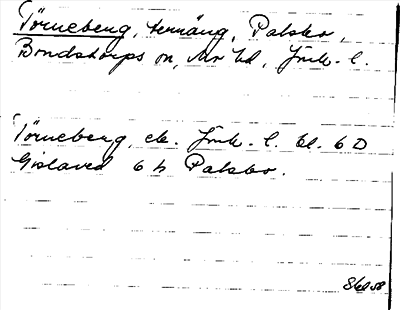 Törneberg, terräng, Palsbo,
Bondstorps sn, Mo hd, Jönk. l.
Törneberg, ek. Jönk. l. bl. 6 D
Gislaved 6 h Palsbo.